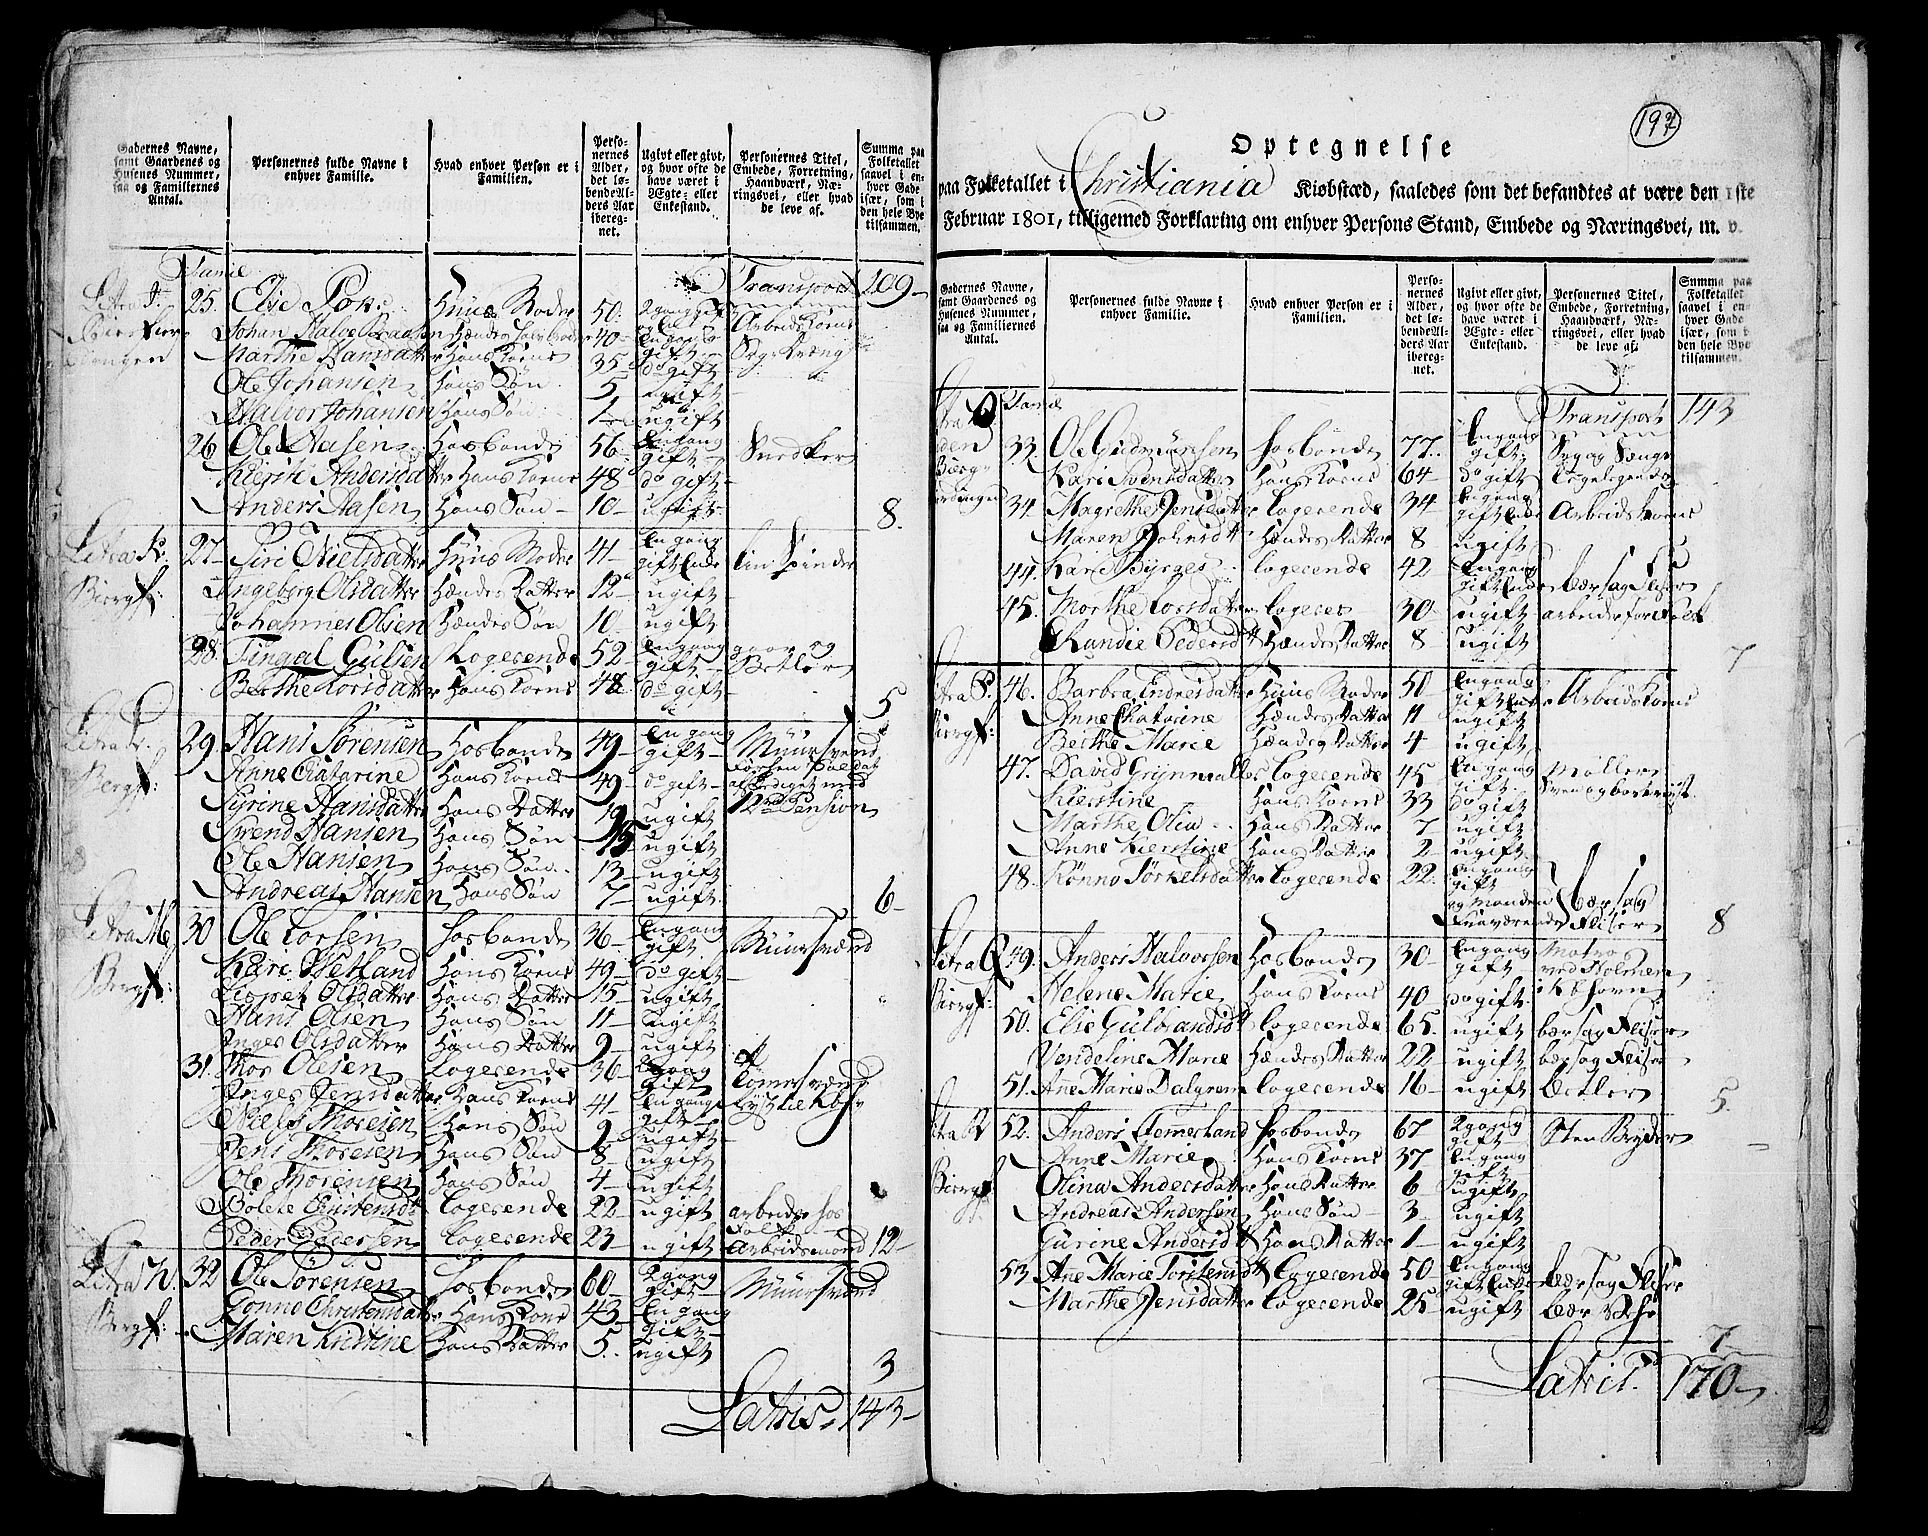 Gadernes Navne, samt Gaardenes og Husenes Nummer, saa og Familiernes Antal.
Personernes fulde Navne i enhver Familie.
Hvad enhver Person er i Familien.
Personernes Alder, det løbende Alders Aar iberegnet.
Ugivt eller givt, og hvor ofte de have været i Ægte- eller Enkestand.
Personernes Titel, Embede, Forretning, Haandværk, Næringsvei, eller hvad de leve af.
Summa paa Folketallet saavel i enhver Gade især, som i den hele Bye tilsammen.
Famil Transport 109
25. Else
Johan Halvor
Marthe Hansdatter Hans Kone 35 do gift
Ole Johansen Hans Søn 5 ugift
Halvor Johansen Hans Søn 1 ugift
26 Ole Aasen Hosbonde 56 Engang gift Snedker
Kierst: Andersdatter Hans Kone 48 do gift
Anders Aasen Hans Søn 10 ugift 8.
Litra K: 27 Siri Nielsdatter Huus Moder 41 Engang gift Enke Lin Spinder
Biergf: Ingeborg Olsdatter Hændes Datter 12 ugift
Johannes Olsen Hændes Søn 10 ugift
28. Gulsen Logerende 52 Engang gift gaar og Betler
Berthe Larsdatter Hans Kone 48 do gift 5
Litra L. 29 Hans Sørensen Hosbonde 49 Engang gift Muursvend
Bergf: Anne Catarine Hans Kone 49 do gift
Syrine Hansdatter Hans Datter 19 ugift
Svend Hansen Hans Søn 15 ugift
Ole Hansen Hans Søn 13 ugift
Andreas Hansen Hans Søn 7 ugift 6
Litra M, 30 Ole Larsen Hosbonde 36 Engang gift Muursvend
Bergf: Kari Hans Kone 49 do gift
Lisbet Olsdatter Hans Datter 15 ugift
Hans Olsen Hans Søn 11 ugift
Inger Olsdatter Hans Datter 9 ugift
31. Thor Olsen Logerende 36 2gang gift
Inger Jensdatter Hans Kone 41 Engang gift
Niels Thoresen Hans Søn 9 ugift
Jens Thoresen Hans Søn 8 ugift
Ole Thoresen Hans Søn 4 ugift
Bolete Christensdt Logerende 22 ugift arbeider hos Folk
Peder Pedersen Logerende 23 ugift Arbeidsmand 12
Litra N. 32 Ole Sørensen Hosbonde 60 2gang gift Muursvend
Bergf: Gonno Christensdatter Hans Kone 43 Engang gift
Maren Kristine Hans Datter 5. ugift 3
Latris 143
197
Optegnelse
paa Folketallet i Christiania Kiøbstæd, saaledes som det befandtes at være den 1ste
Februar 1801, tilligemed Forklaring om enhver Persons Stand, Embede og Næringsvei, m. v.
Gadernes Navne, samt Gaardenes og Husenes Nummer, saa og Familiernes Antal.
Personernes fulde Navne i enhver Familie.
Hvad enhver Person er i Familien.
Personernes Alder, det løbende Alders Aar iberegnet.
Ugivt eller givt, og hvor ofte de have været i Ægte- eller Enkestand.
Personernes Titel, Embede, Forretning, Haandværk, Næringsvei, eller hvad de leve af.
Summa paa Folketallet saavel i enhver Gade især, som i den hele Bye tilsammen.
Famil Transport 143
33. Ole Gudmunsen Hosbonde 77. Engang gift Syg og Sængeliggende
Kari Svensdatter Hans Kone 64 do gift
34 Magrethe Jensdatter Logerende 34 Engang gift Enke Arbeidskone
Maren Johnsdt Hændes Datter 8 ugift
44. Kari Byrges Logerende 42 Engang gift Enke bær sag Fliser
45. Marthe Larsdatter Logerer 30 ugift arbeider for Folk
Randie Pedersdt Hændes Datter 8 ugift 7
Litra P. 46. Barbra Endresdatter Huus Moder 50 Engang gift Enke Arbeidskone
Biergf: Anne Catarine Hændes Datter 11 ugift
Berthe Marie Hændes Datter 4 ugift
47. David Logerende 45 Engang gift Møller
Kierstine Hans Kone 33 do gift
Marthe Olia Hans Datter 7 ugift
Anne Kierstine Hans Datter 2 ugift
48. Rønno Torkelsdatter Logerende 22. Engang gift og Manden fraværende bær sag Fliser 8
Litra Q 49. Anders Halvorsen Hosbonde 30 Engang gift Matros ved Holmen i Kbhavn
Biergf: Helene Marie Hans Kone 40 do gift
50. Else Gulbrandsdt Logerende 65. ugift bær sag Fliser
Vendeline Marie Hændes Datter 22 ugift bær sag Fliser
51. Ane Marie Dalgren Logerende 16 ugift Betler 5.
Litra R 52. Anders Hosbonde 67 2gang gift Sten Bryder
Biergf: Anne Marie Hans Kone 37 Engang gift
Olina Andersdatter Hans Datter 6 ugift
Andreas Andersøn Hans Søn 3 ugift
Gurine Andersdt Hans Datter 1 ugift
53. Ane Marie Torstensdt Logerende 50 Engang gift Enke bær sag Fliser
Marthe Jensdatter Logerende 25 ugift bær 7
Latris 170